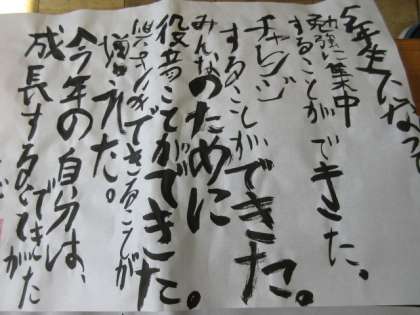 5年生になっ
勉強に集中
することができた。
チャレンジ
することができた。
みんなのために
役立つことができた。
できることが
増えた。
今年の自分は、
成長することができた